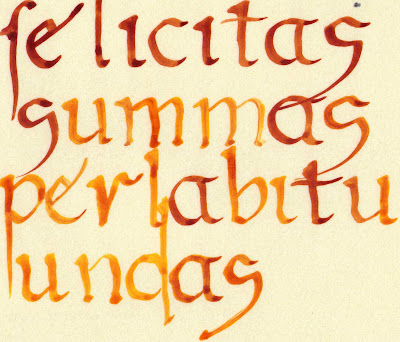 felicitas
summas
perlabitu
undas